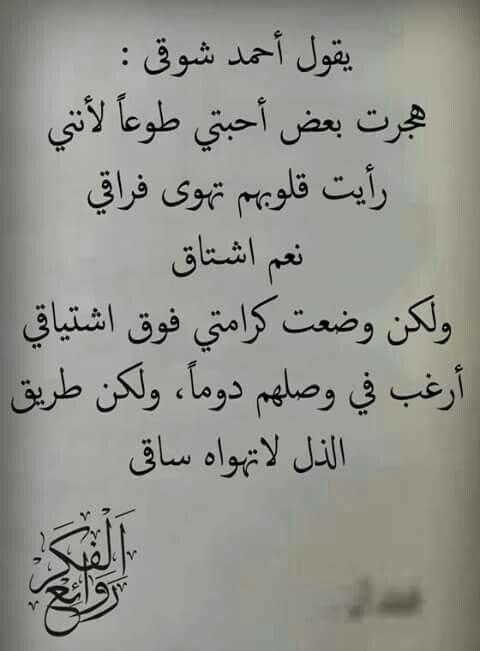 يقول أحمد شوقى :
هجرت بعض أحبتي طوعاً لأنني
رأيت قلوبهم تهوى فراقي
نعم اشتاق
ولكن وضعت كرامتي فوق اشتياقي
أرغب في وصلهم دوماً، ولكن طريق
الذل لاتهواه ساقى
روائع الفكر